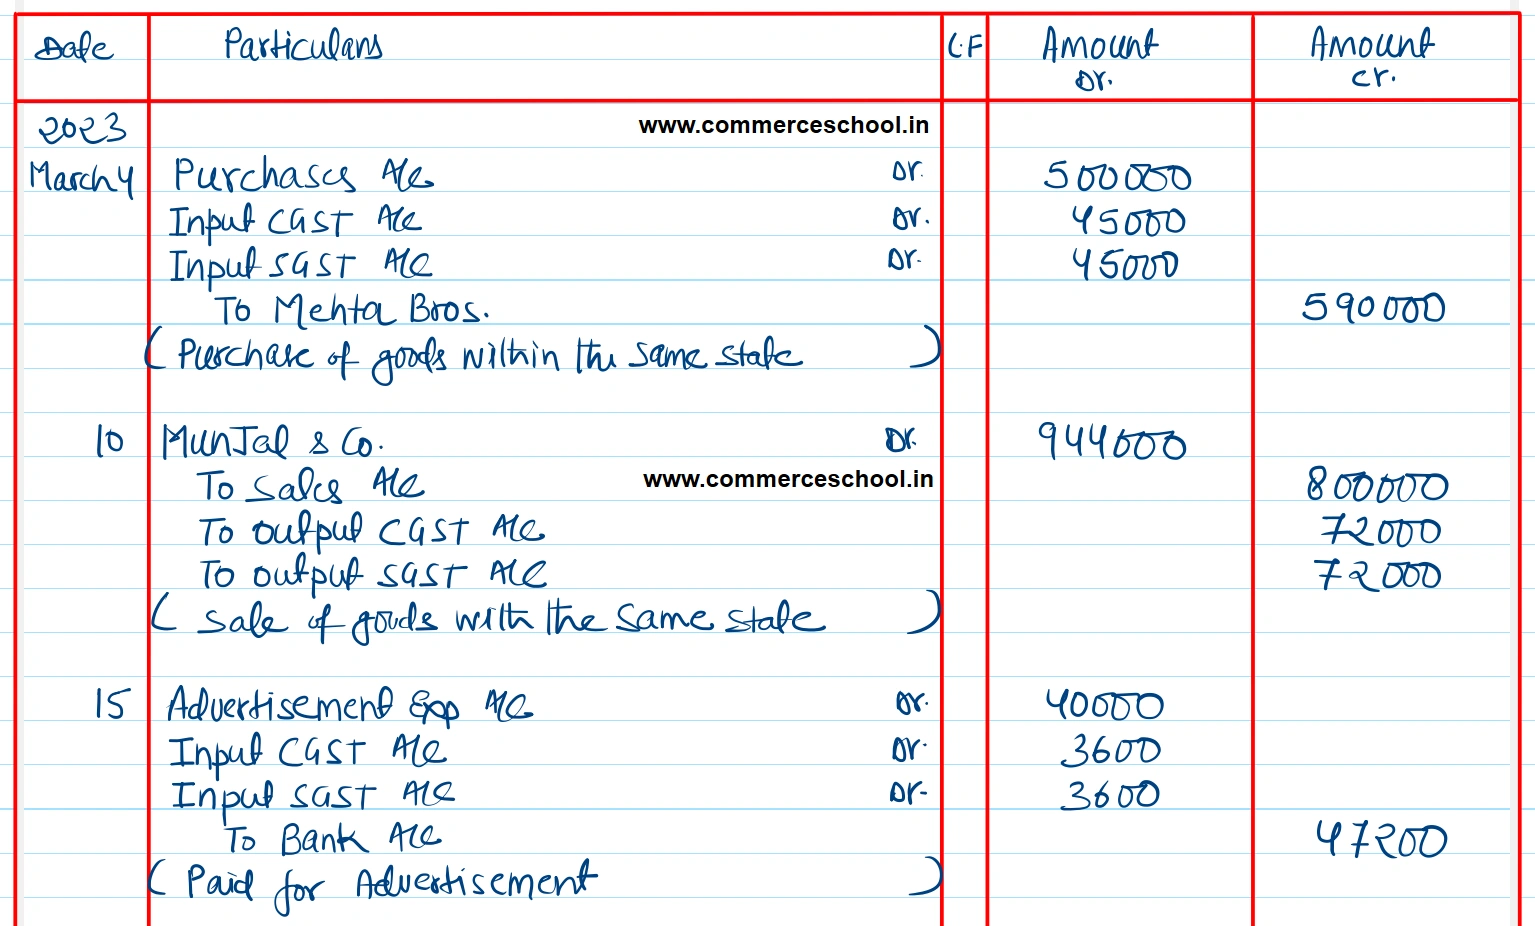 Date Particulars L.F Amount Dr. Amount Cr.
2023 www.commerceschool.in
March 4 Purchases A/c Dr. 500000
Input CGST A/c Dr. 45000
Input SGST A/c Dr. 45000
To Mehta Bros. 590000
(Purchase of goods within the same state)
10 Munjal & Co. Dr. 944000
To Sales A/c www.commerceschool.in 800000
To output CGST A/c 72000
To output SGST A/c 72000
(Sale of goods with the same state)
15 Advertisement Exp A/c Dr. 40000
Input CGST A/c Dr. 3600
Input SGST A/c Dr. 3600
To Bank A/c 47200
(Paid for Advertisement)